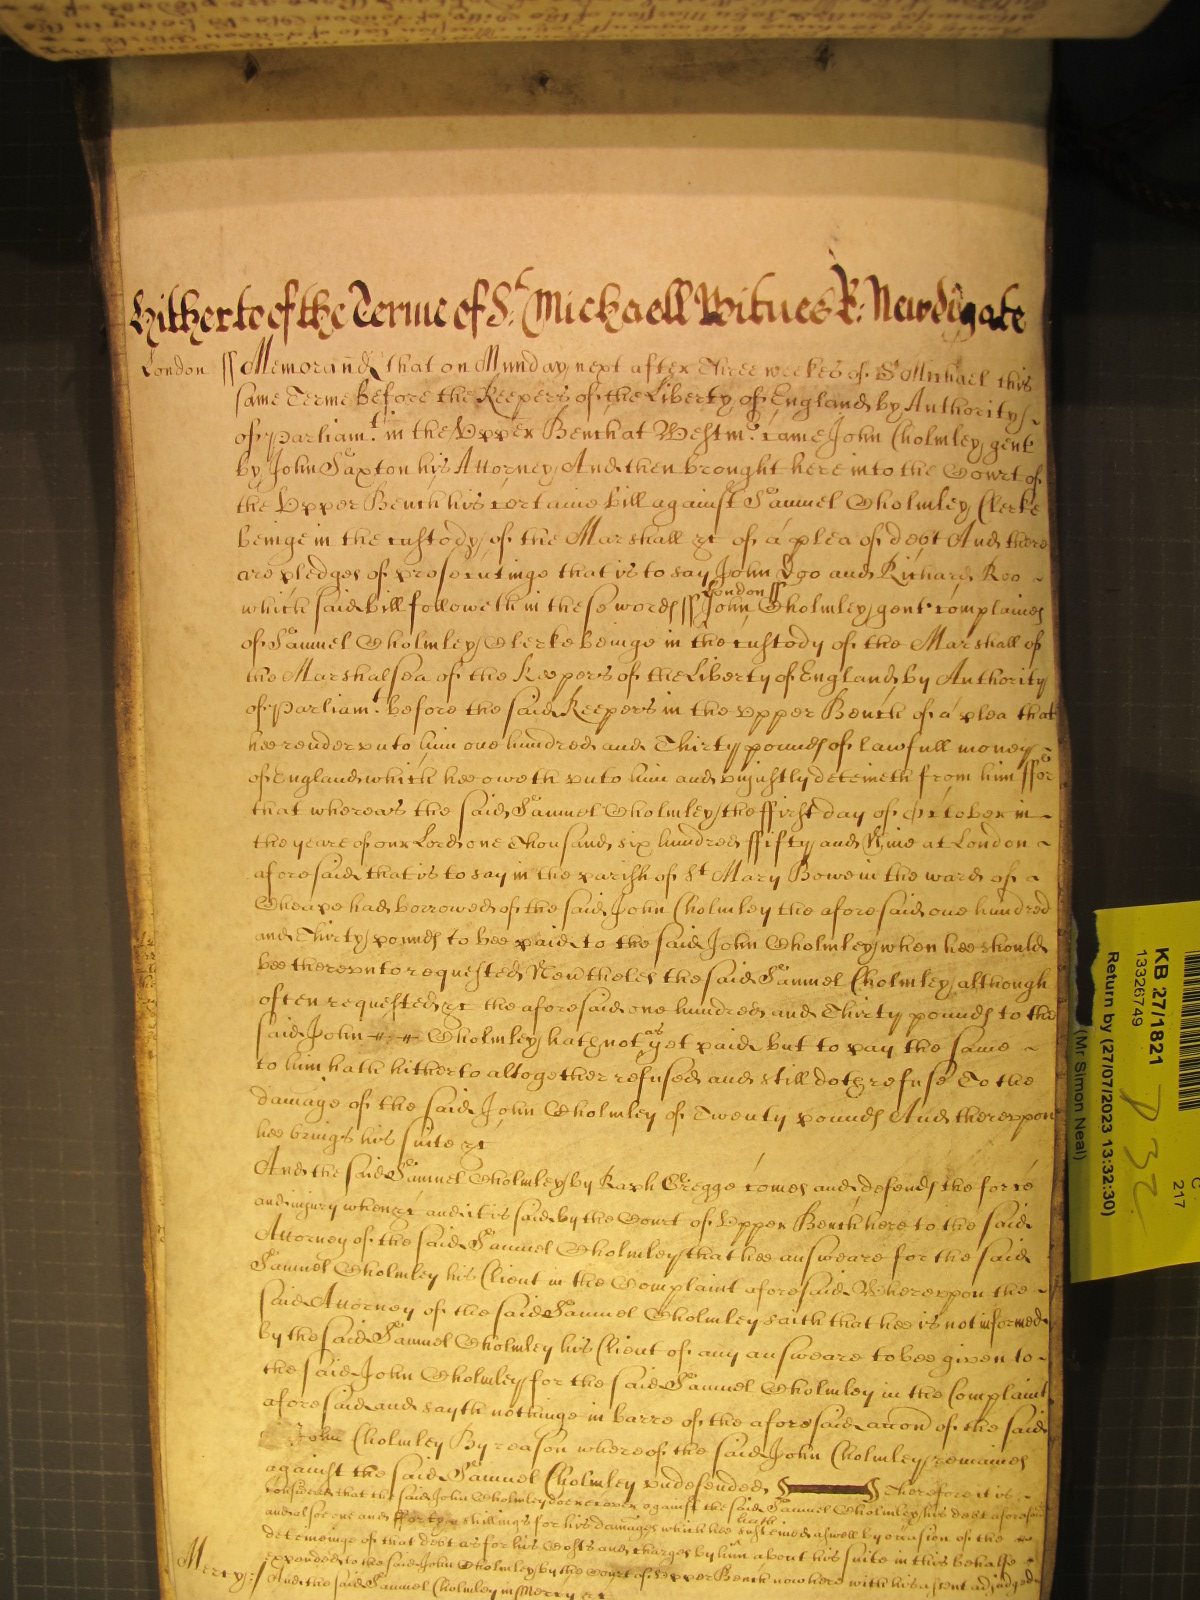 Hitherto of the Terme of St. Michaell Witnes R: Newdigate
London ss Memorand that on Munday next after Three weekes of St Michael this
same Terme before the Keepers of the Liberty of England by Authority
of Parliamt. in the Upper Bench at Westmr. came John Cholmley gent
by John Saxton his Attorney And then brought here into the Court of
the Upper Bench his certaine bill against Samuel Cholmley Clerke
beinge in the custody of the Marshall &c of a plea of debt And there
are pledges of prosecutinge that is to say John Doo and Richard Roo
which said bill followeth in these words ss London ss John Cholmley gent complaines
of Samuel Cholmley Clerke beinge in the custody of the Marshall of
the Marshalsea of the Keepers of the Liberty of England by Authority
of Parliamt. before the said Keepers in the Upper Bench of a plea that
hee render unto him one hundred and Thirty pounds of lawfull money
of England which hee oweth unto him and unjustly deteineth from him ffor
that whereas the said Samuel Cholmley the ffirst day of October in
the yeare of our Lord one Thousand six hundred ffifty and Nine at London
aforesaid that is to say in the parish of St Mary Bowe in the ward of
Cheape had borrowed of the said John Cholmley the aforesaid one hundred
and Thirty pounds to bee paid to the said John Cholmley when hee should
bee thereunto requested Neverthelesse the said Samuel Cholmley although
often requested &c the aforesaid one hundred and Thirty pounds to the
said John Cholmley hath not as yet paid but to pay the same
to him hath hitherto altogether refused and still doth refuse To the
damage of the said John Cholmley of Twenty pounds And thereupon
hee brings his suite &c
And the said Samuel Cholmley by Raph Gregge comes and defends the force
and injury when &c and it is said by the Court of Upper Bench here to the said
Attorney of the said Samuel Cholmley that hee answeare for the said
Samuel Cholmley his Client in the Complaint aforesaid Whereupon the
said Attorney of the said Samuel Cholmley saith that hee is not informed
by the said Samuel Cholmley his Client of any answeare to bee given to
the said John Cholmley for the said Samuel Cholmley in the Complaint
aforesaid and sayth nothinge in barre of the aforesaid accon of the said
John Cholmley By reason whereof the said John Cholmley remaines
against the said Samuel Cholmley undefended Therefore it is
considered that the said John Cholmley doe recover against the said Samuel Cholmley his debt aforesaid
and alsoe one and fforty shillings for his damages which hee hath susteined aswell by occasion of the
deteininge of that debt as for his Costs and charges by him about his suite in this behalfe
Mercy:/ expended to the said John Cholmley by the Court of Upper Bench now here with his assent adjudged
And the said Samuel Cholmley in Mercy &c
KB 27/1821
13326749
Return by (27/07/2023 13:32:30)
(Mr Simon Neal)
C
217
P 32